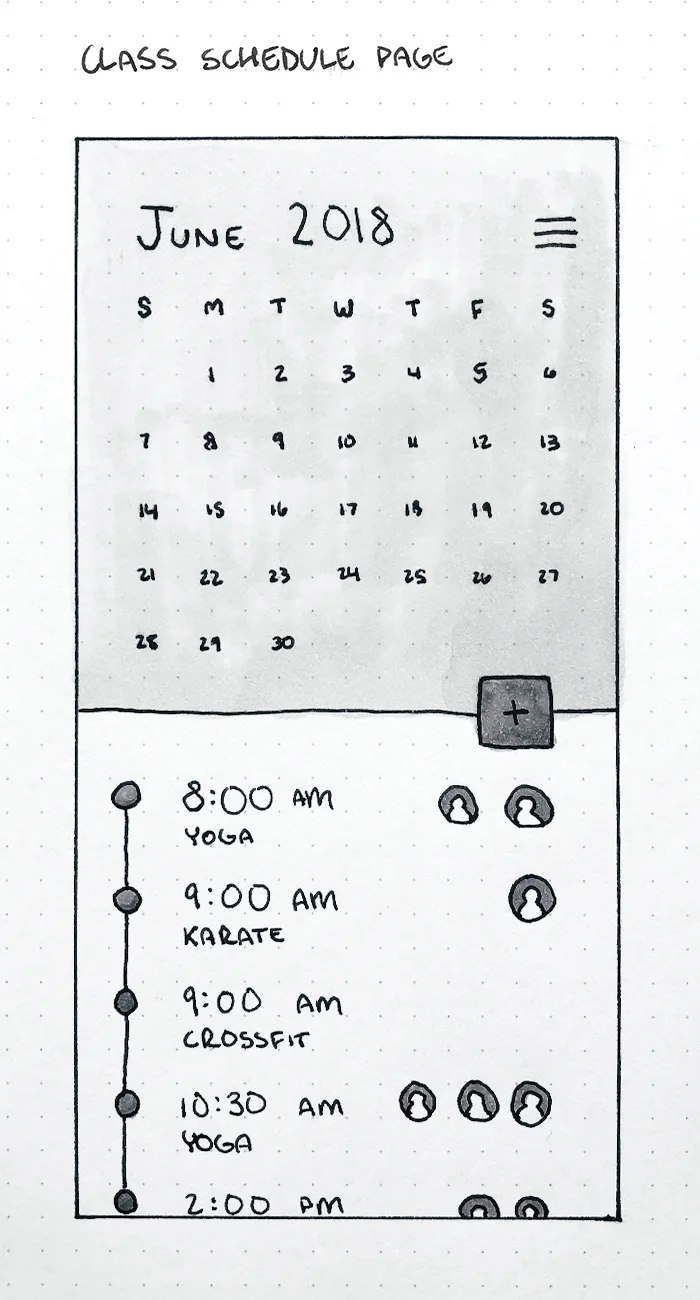 CLASS SCHEDULE PAGE
JUNE 2018
S M T W T F S
1 2 3 4 5 6
7 8 9 10 11 12 13
14 15 16 17 18 19 20
21 22 23 24 25 26 27
28 29 30
+
8:00 AM
YOGA
9:00 AM
KARATE
9:00 AM
CROSSFIT
10:30 AM
YOGA
2:00 PM